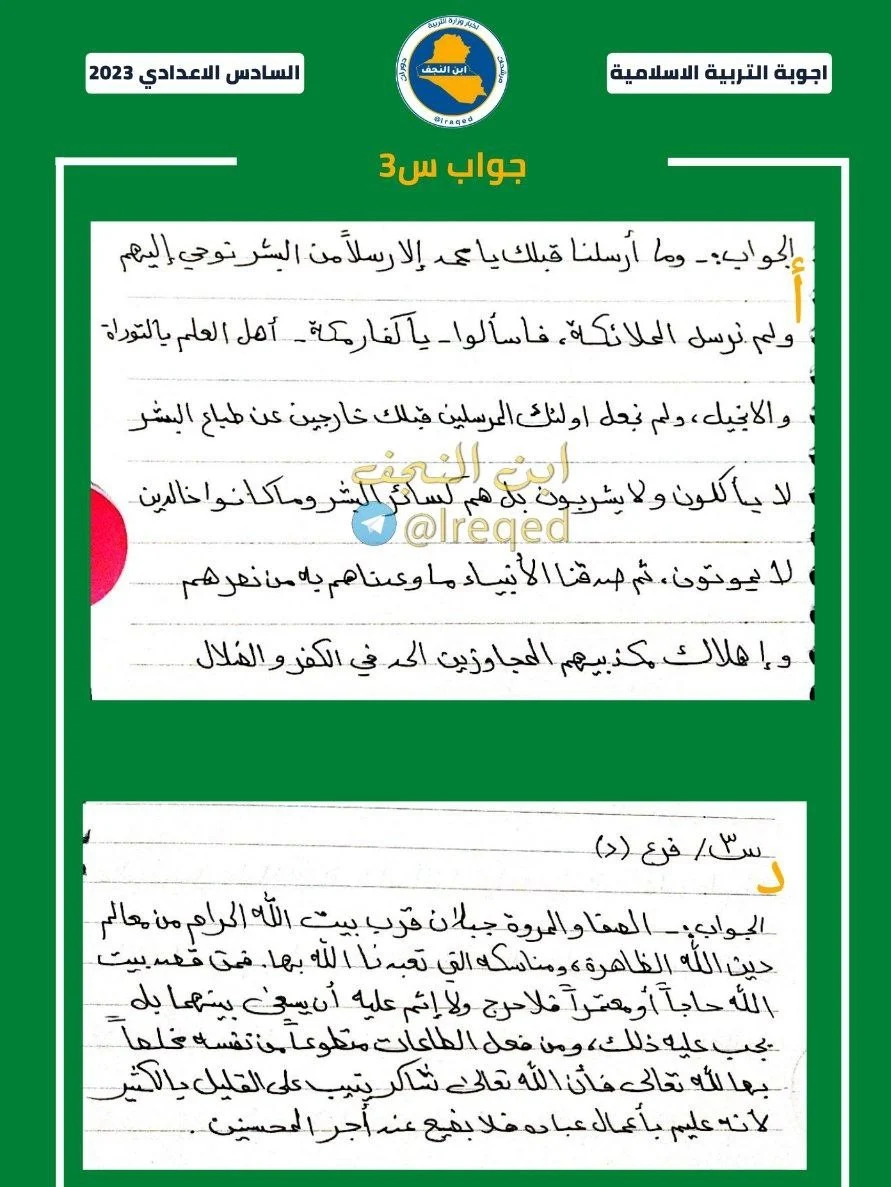 اجوبة التربية الاسلامية
السادس الاعدادي 2023
اخبار وزارة التربية
مرشحات
ابن النجف
دورات
@Iraqed
جواب س3
أ
الجواب:- وما أرسلنا قبلك يا محمد إلا رسلاً من البشر نوحي إليهم
ولم نرسل الملائكة، فاسألوا- يا كفار مكة- أهل العلم بالتوراة
والانجيل، ولم نجعل اولئك المرسلين قبلك خارجين عن طباع البشر
لا يأكلون ولا يشربون بل هم كسائر البشر وما كانوا خالدين
لا يموتون، ثم صدقنا الأنبياء ما وعدناهم به من نصرهم
وإهلاك مكذبيهم المجاوزين الحد في الكفر والضلال
ابن النجف
@Ireqed
س٣/ فرع (د)
د
الجواب:- الصفا والمروة جبلان قرب بيت الله الحرام من معالم
دين الله الظاهرة، ومناسكه التي تعبدنا الله بها. فمتى قصد بيت
الله حاجاً أو معتمراً فلا حرج ولا إثم عليه أن يسعى بينهما بل
يجب عليه ذلك، ومن فعل الطاعات متطوعاً من نفسه مخلصاً
بها لله تعالى فأن الله تعالى شاكر يثيب على القليل بالكثير
لأنه عليم بأعمال عباده فلا يضيع عنده أجر المحسنين .